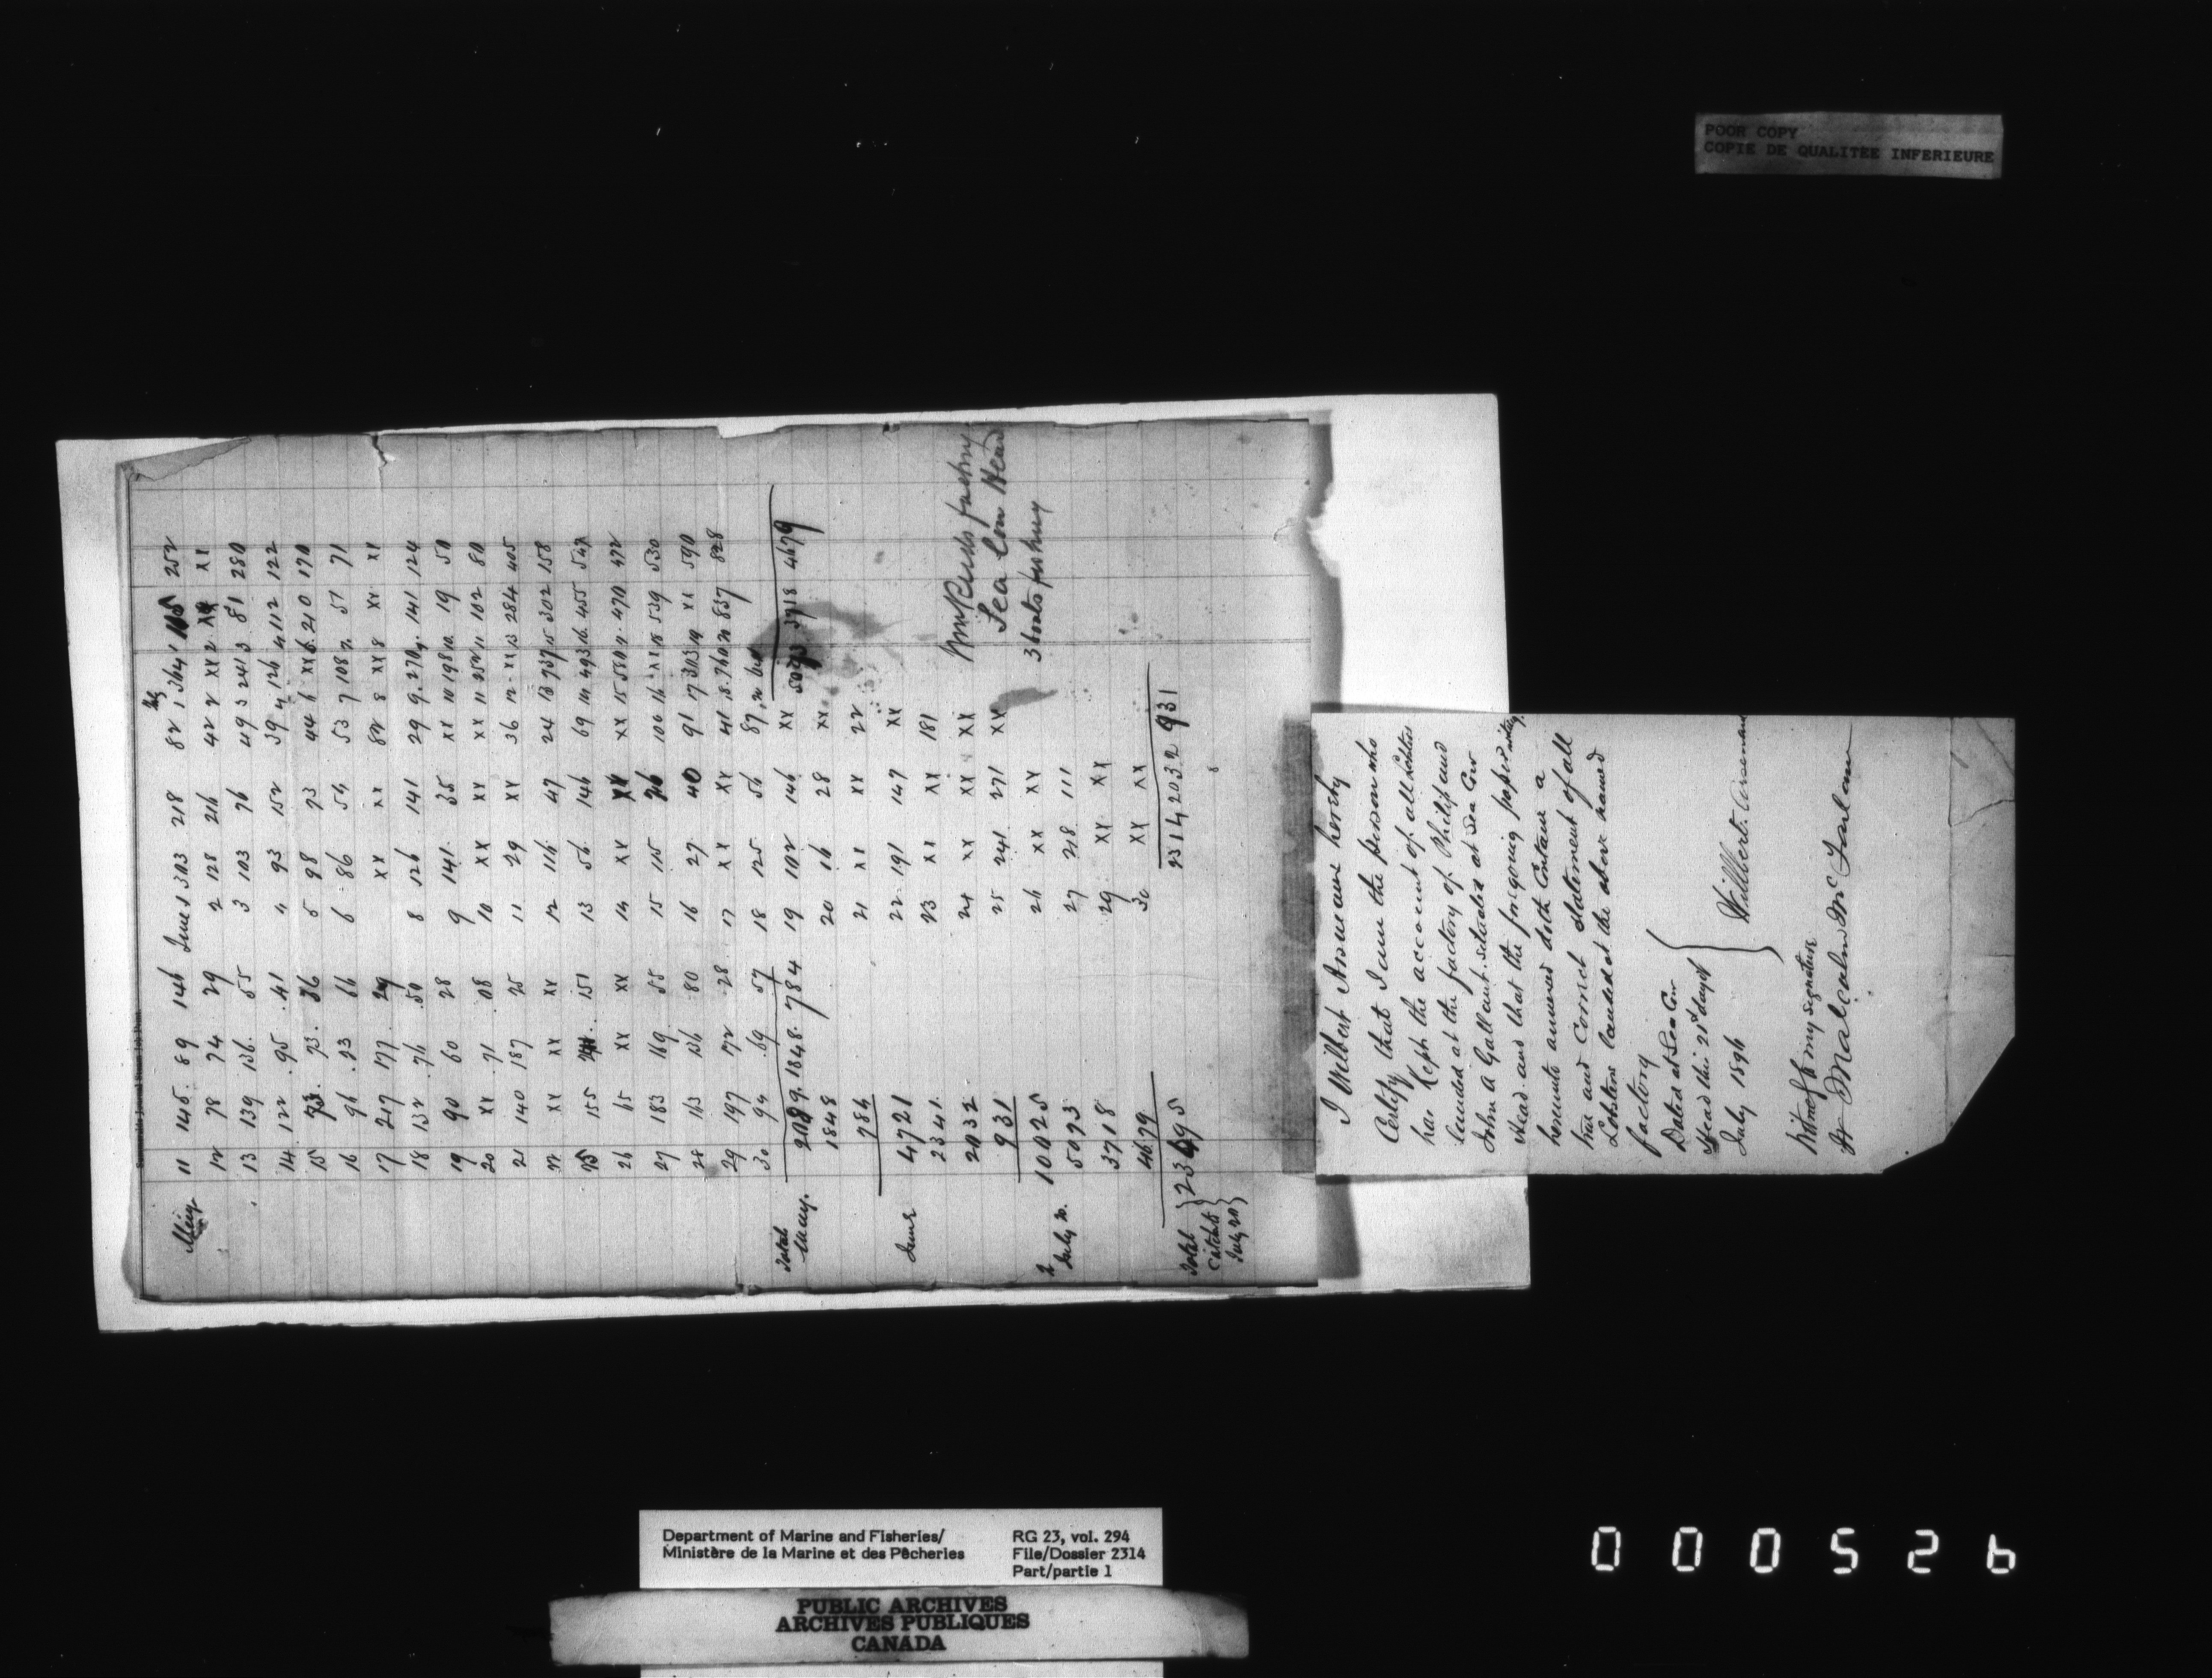 POOR COPY
COPIE DE QUALITEE INFERIEURE
May 11 145 89 146 June 1 303 218 82 1 364 1 252
12 78 74 29 2 128 216 42 2 xx 2 xx
13 139 136 55 3 103 76 49 3 241 3 81 280
14 122 95 41 4 93 152 39 4 126 4 112 122
15 73 5 98 73 44 6 xx 6 210 170
16 96 93 66 6 86 54 53 7 108 7 51 71
17 217 177 29 xx xx 82 8 xx 8 xx xx
18 132 76 50 8 126 141 29 9 270 9 141 124
19 90 60 28 9 141 35 xx 10 198 10 19 50
20 xx 71 08 10 xx xx xx 11 252 11 102 80
21 140 187 25 11 29 xx 36 12 xx 13 284 405
22 xx xx xx 12 116 47 24 13 737 15 302 158
25 155 151 13 56 146 69 14 493 16 455 547
26 65 xx xx 14 xx xx xx 15 580 17 470 472
27 183 169 55 15 115 76 106 16 xx 18 539 530
28 163 136 80 16 27 40 91 17 303 19 xx 590
29 197 172 28 17 xx xx 41 18 760 20 837 828
30 94 69 57 18 125 56 87 20
Total May. 2089 1848 784 19 102 146 xx 5093 3718 4679
1848 20 16 28 xx
784 21 xx xx 22
June 4721 22 191 147 xx
2341 23 xx xx 181
2032 24 xx xx xx
931 25 241 271 xx
10025 26 xx xx
July 20. 5093 27 218 111
3718 29 xx xx
4679 30 xx xx
Total Catch to July 20 23495 2314 2032 931
Sea Cow Head
3 boats fishing
I Wilbert Arsneaux hereby
Certify that I am the person who
has Kept the account of all lobsters
landed at the factory of Philip and
John A Gallant situated at Sea Cow
Head and that the forgoing paper writing
hereunto annexed doth Contain a
true and correct statement of all
Lobsters landed at the above named
factory
Dated at Sea Cow
Head this 21st day of
July 1896
Willbert Arsenau
Witness to my signature
Malcolm McFarlane
Department of Marine and Fisheries/
Ministère de la Marine et des Pêcheries
RG 23, vol. 294
File/Dossier 2314
Part/partie 1
PUBLIC ARCHIVES
ARCHIVES PUBLIQUES
CANADA
000526